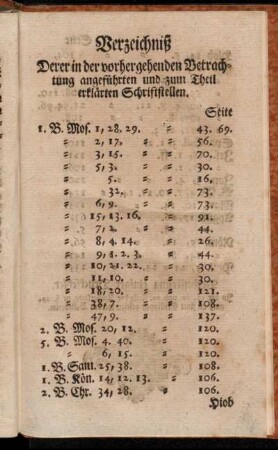 Verzeichniß
Derer in der vorhergehenden Betrach-
tung angeführten und zum Theil
erklärten Schriftstellen.
Seite
1. B. Mos. 1, 28. 29. = 43. 69.
= 2, 17. = 56.
= 3, 15. = 70.
= 5, 3. = 30.
= 5. = 16.
= 32. = 73.
= 6, = 73.
= 15, 13. 16. = 91.
= 7, 2. = 44.
= 8, 4. 14. = 26.
= 9, 1. 2. 3. = 44.
= 10, 21. 22. = 30.
= 11, 10. = 30.
= 18, 20. = 121.
= 38, 7. = 108.
= 47, 9. = 137.
2. B. Mos. 20, 12. = 120.
5. B. Mos. 4. 40. = 120.
= 6, 15. = 120.
1. B. Sam. 25, 38. = 108.
1. B. Kön. 14, 12. 13. = 106.
2. B. Chr. 34, 28. = 106.
Hiob